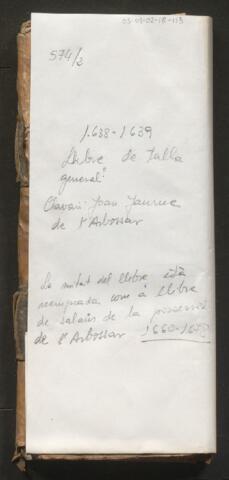 03-01-02-18-113
574/2
1.638-1639
Llibre de Talla
general
Clavari: Joan Jaume
de l'Arbossar
La mitat del llibre està
com a Llibre
de salaris de la possessió
de l'Arbossar 1660-167